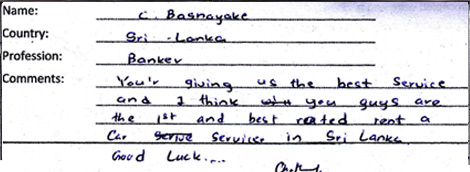 Name: C. Basnayake
Country: Sri - Lanka
Profession: Banker
Comments: You'r giving us the best service
and I think you guys are
the 1st and best reated rent a
Car Service in Sri Lanka
Good Luck....